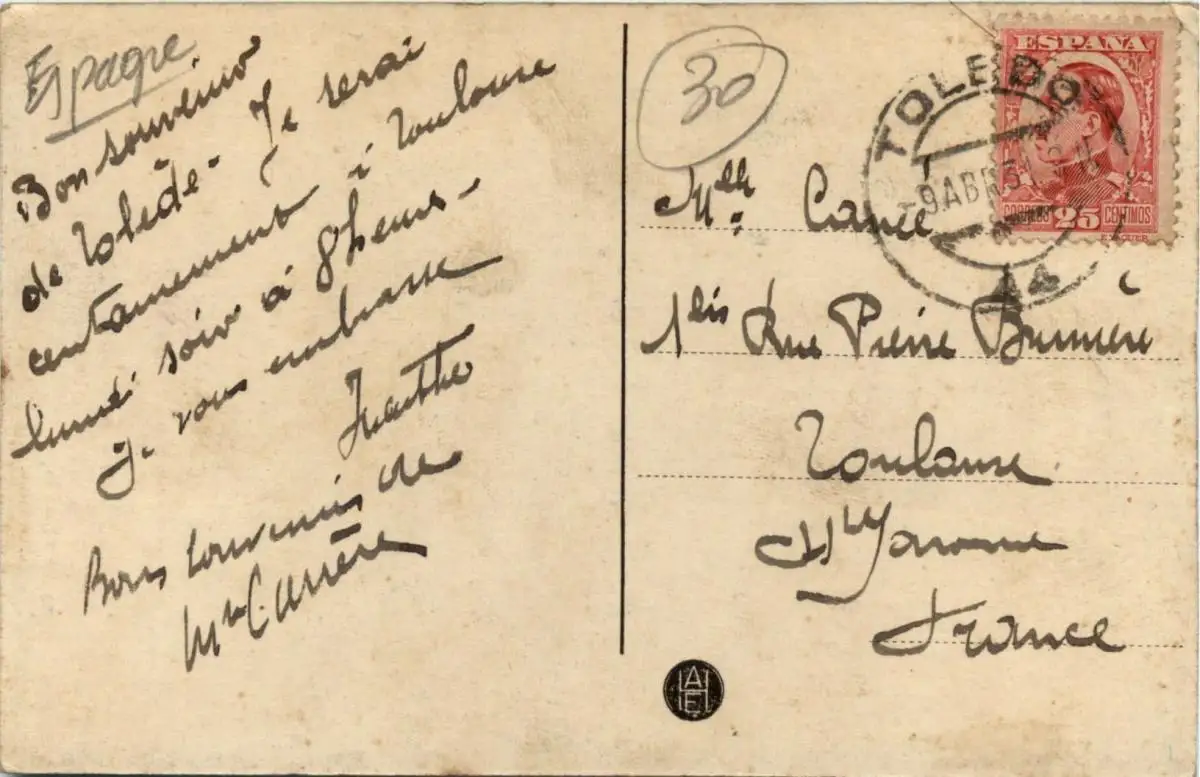 Espagne
Bon souvenir
de Tolède - Je serai
certainement à Toulouse
lundi soir à 8 heures -
Je vous embrasse
Bons souvenirs de
Mme Carrère
30
ESPAÑA
CORREOS 25 CENTIMOS
TOLEDO
-9 ABR 31
Mlle
1 bis Rue Pierre Brunière
Toulouse
Hte Garonne
France
AHE